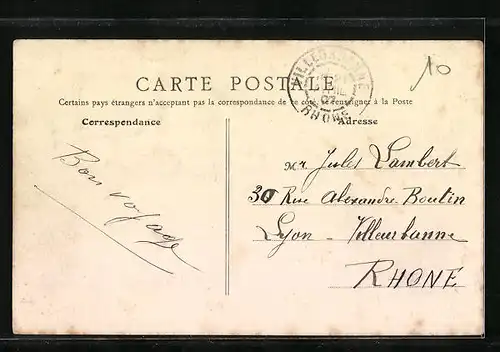 10
CARTE POSTALE
Certains pays étrangers n'acceptant pas la correspondance de ce côté, se renseigner à la Poste
Correspondance
Adresse
VILLEURBANNE
RHONE
Bon voyage
Mr Jules Lambert
30 Rue Alexandre Boutin
Lyon - Villeurbanne
RHONE